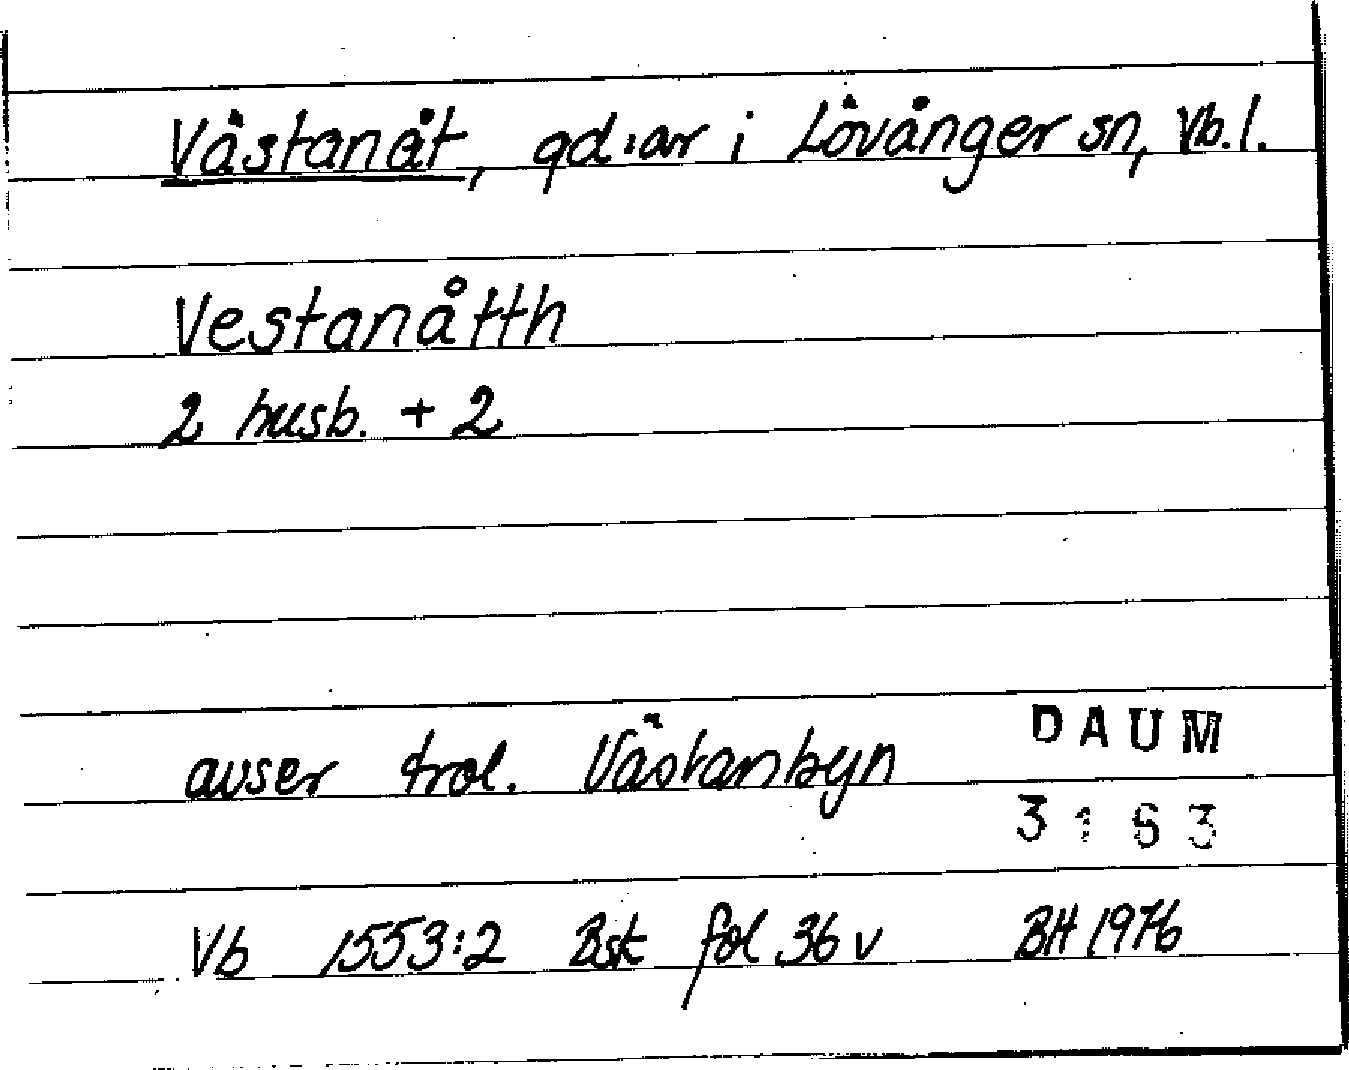 Västanåt, gd:ar i Lövånger sn, Vb.l.
Vestanåtth
2 husb. + 2
avser trol. Västanbyn
DAUM
3163
Vb 1553:2 Bsk fol 36 v BH 1976